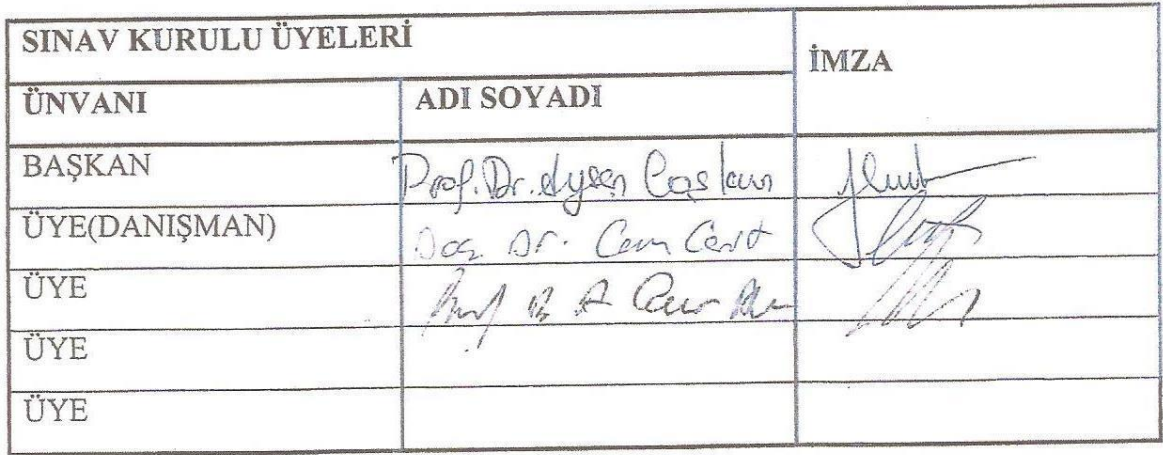 SINAV KURULU ÜYELERİ
İMZA
ÜNVANI ADI SOYADI
BAŞKAN Prof. Dr. Ayşen Coşkun
ÜYE(DANIŞMAN) Doç. Dr. Cem Cerit
ÜYE Prof
ÜYE
ÜYE